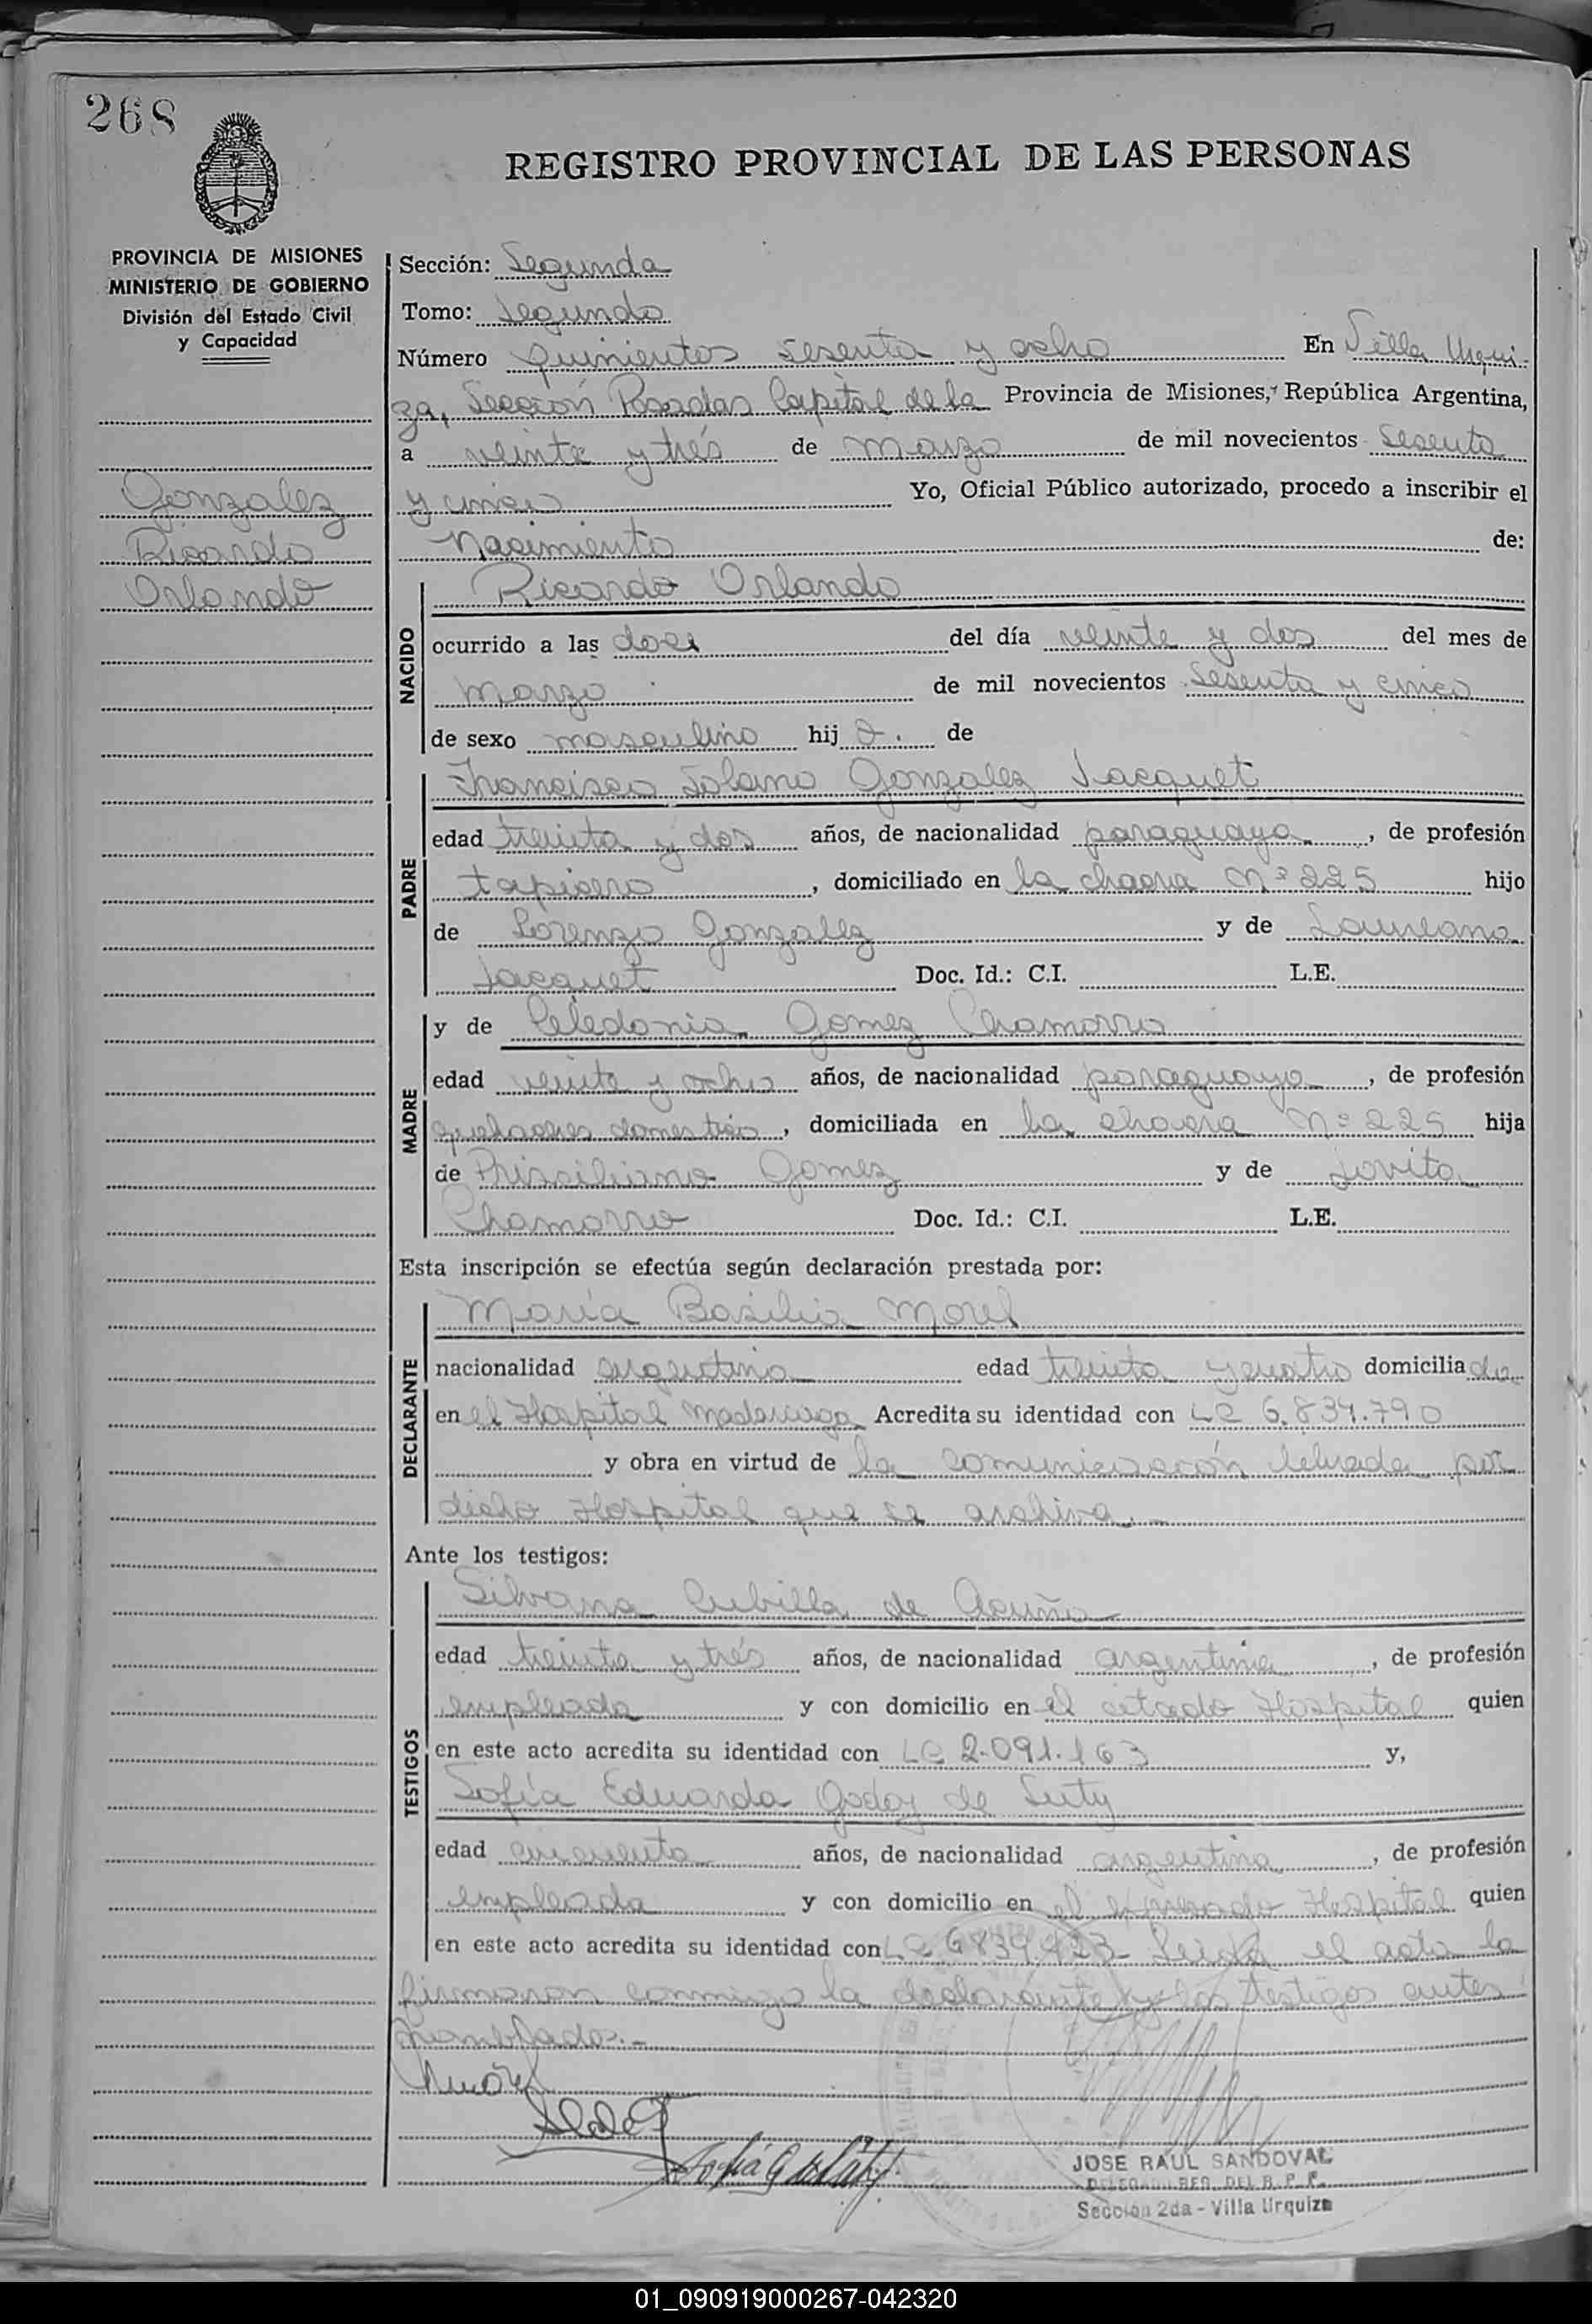 268
REGISTRO PROVINCIAL DE LAS PERSONAS
PROVINCIA DE MISIONES
MINISTERIO DE GOBIERNO
División del Estado Civil
y Capacidad
Gonzalez
Ricardo
Orlando
Sección: Segunda
Tomo: Segundo
Número quinientos sesenta y ocho En Villa Urqui-
za, Sección Posadas Capital de la Provincia de Misiones, República Argentina,
a veinte y trés de Marzo de mil novecientos sesenta
y cinco Yo, Oficial Público autorizado, procedo a inscribir el
Nacimiento de:
NACIDO
Ricardo Orlando
ocurrido a las doce del día veinte y dos del mes de
Marzo de mil novecientos sesenta y cinco
de sexo masculino hij o. de
PADRE
Francisco Solano Gonzalez Jacquet
edad treinta y dos años, de nacionalidad paraguaya, de profesión
tapicero, domiciliado en la chacra Nº 225 hijo
de Lorenzo Gonzalez y de Laureana
Jacquet Doc. Id.: C.I. L.E.
MADRE
y de Celedonia Gomez Chamorro
edad veinte y ocho años, de nacionalidad paraguaya, de profesión
quehaceres domesticos, domiciliada en la chacra Nº 225 hija
de Prisciliano Gomez y de Jovita
Chamorro Doc. Id.: C.I. L.E.
Esta inscripción se efectúa según declaración prestada por:
DECLARANTE
María Basilia Morel
nacionalidad argentina edad treinta y cuatro domiciliada
en el Hospital Madariaga Acredita su identidad con LC 6.834.790
y obra en virtud de la comunicación labrada por
dicho Hospital que se archiva.-
Ante los testigos:
TESTIGOS
Silvana Cubilla de Acuña
edad treinta y trés años, de nacionalidad argentina, de profesión
empleada y con domicilio en el citado Hospital quien
en este acto acredita su identidad con LC 2.091.163 y,
Sofía Eduarda Godoy de Suty
edad cincuenta años, de nacionalidad argentina, de profesión
empleada y con domicilio en el Hospital quien
en este acto acredita su identidad con LC 6839423- Leida el acta la
firmaron conmigo la declarante y los testigos antes
nombrados.-
JOSE RAUL SANDOVAL
DELEGADO REG. DEL R. P. P.
Sección 2da - Villa Urquiza
01_090919000267-042320